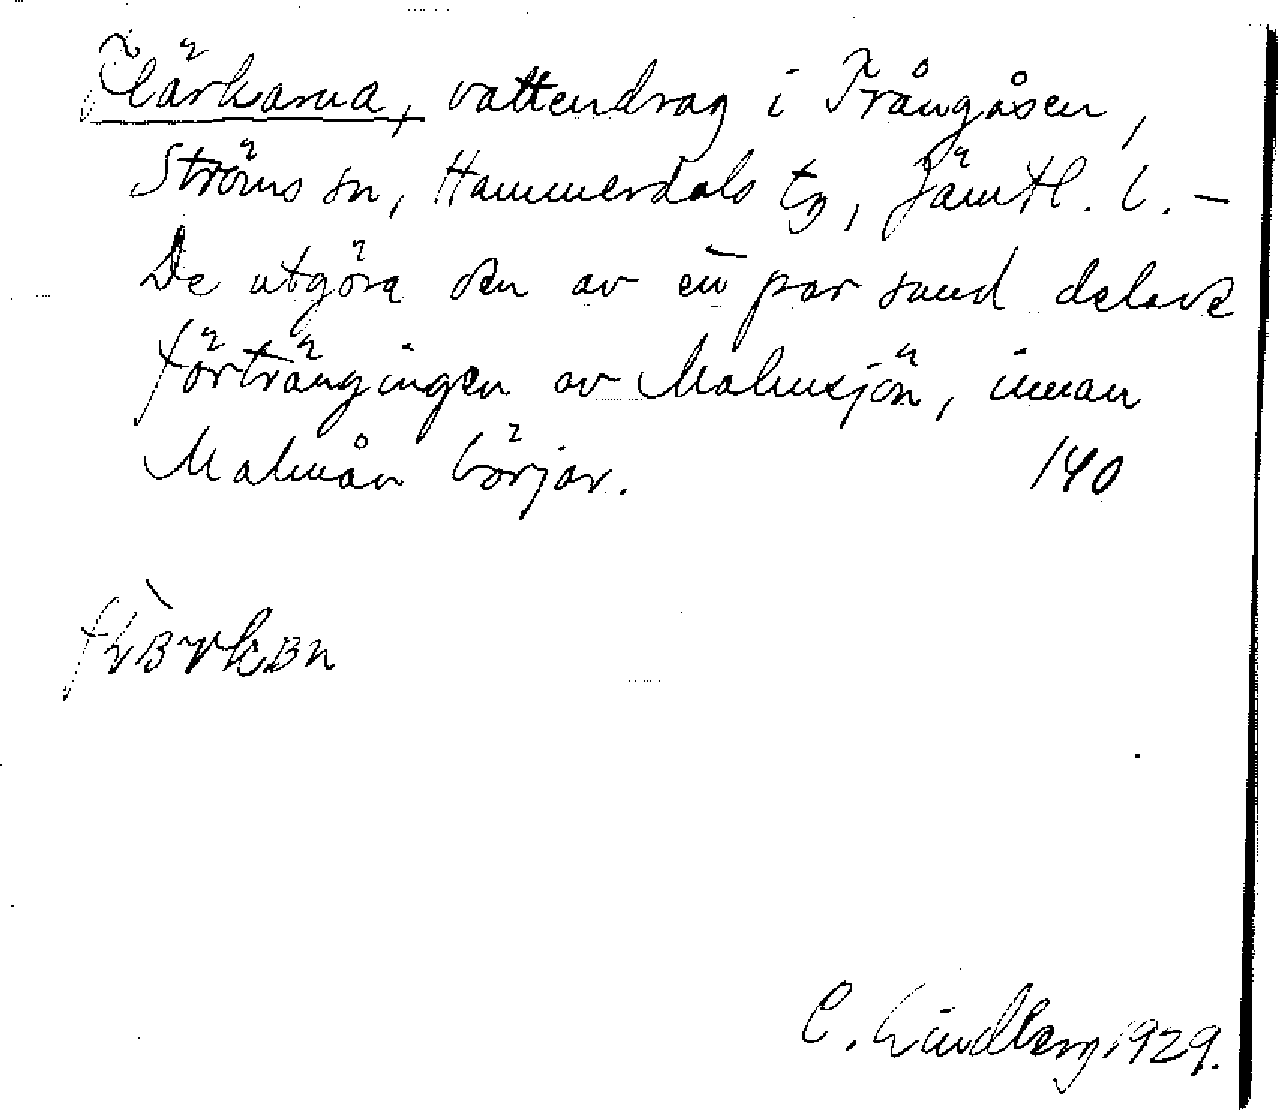 Flärkarna, vattendrag i Trångåsen,
Ströms sn, Hammerdals tg, Jämtl. l. –
De utgöra den av ett par sund delade
förträngingen av Malmsjön, innan
Malmån börjar. 140
C. Lindberg 1929.